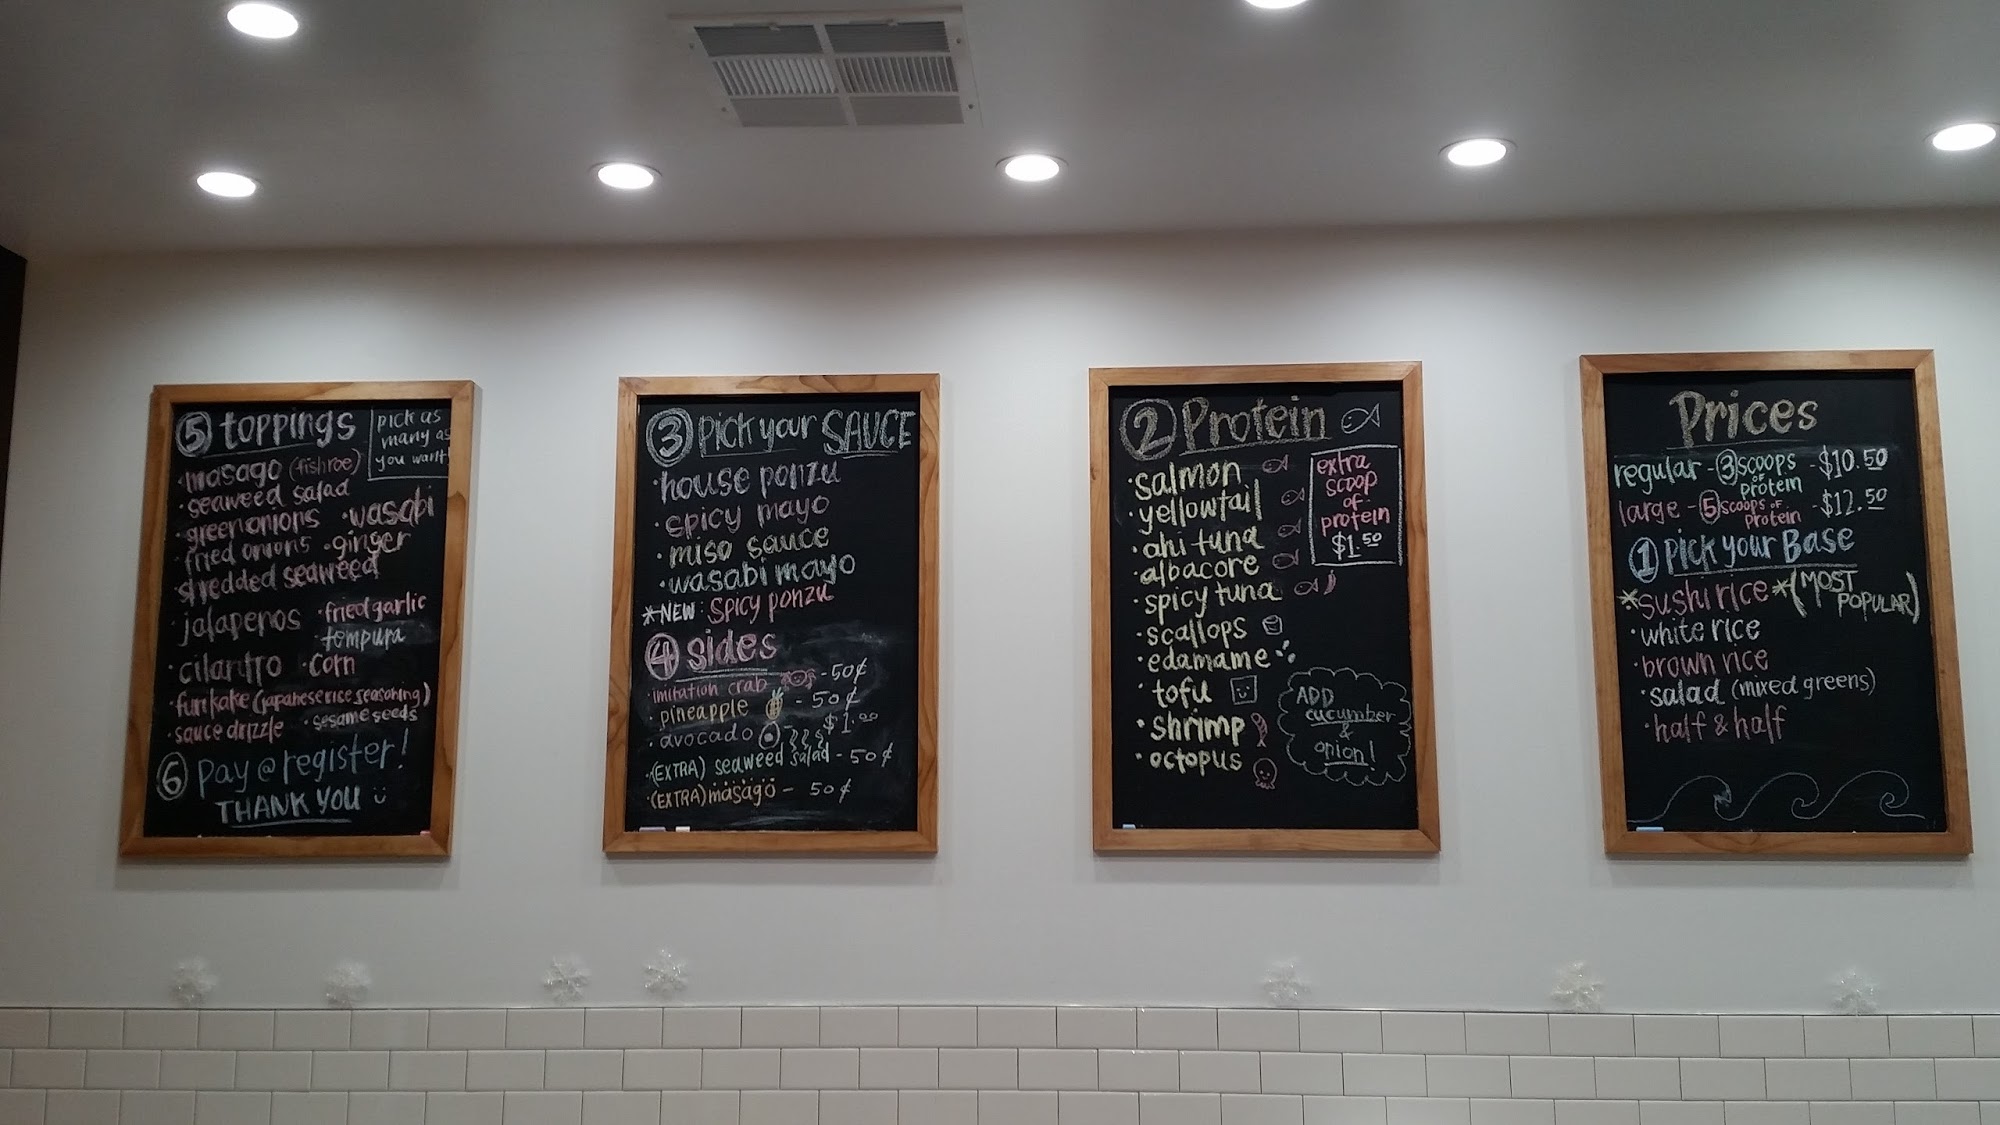 5 toppings
pick as
many as
you want!
masago (fishroe)
· seaweed salad
· greenonions · wasabi
· fried onions · ginger
shredded seaweed
· jalapenos · fried garlic
· tempura
· cilantro · corn
· furikake (japanese rice seasoning)
· sauce drizzle · sesame seeds
6 pay @ register!
THANK YOU
3 pick your SAUCE
· house ponzu
· spicy mayo
· miso sauce
· wasabi mayo
*NEW: spicy ponzu
4 sides
imitation crab - 50¢
· pineapple - 50¢
· avocado - $1.00
· (EXTRA) seaweed salad - 50¢
· (EXTRA) masago - 50¢
2 Protein
· salmon
· yellowtail
· ahi tuna
· albacore
· spicy tuna
· scallops
· edamame
· tofu
· shrimp
· octopus
extra
scoop
of
protein
$1.50
ADD
cucumber
&
onion!
Prices
regular - 3 scoops of protein - $10.50
large - 5 scoops of protein - $12.50
1 Pick your Base
* sushi rice * (MOST POPULAR)
· white rice
· brown rice
· salad (mixed greens)
· half & half